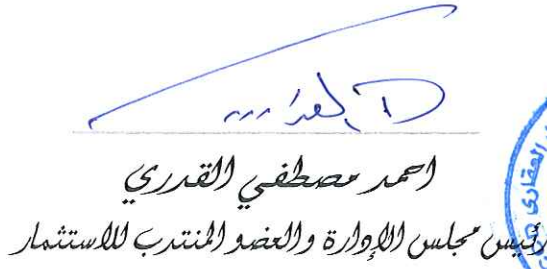 احمد مصطفي القدري
رئيس مجلس الإدارة والعضو المنتدب للاستثمار
العقاري